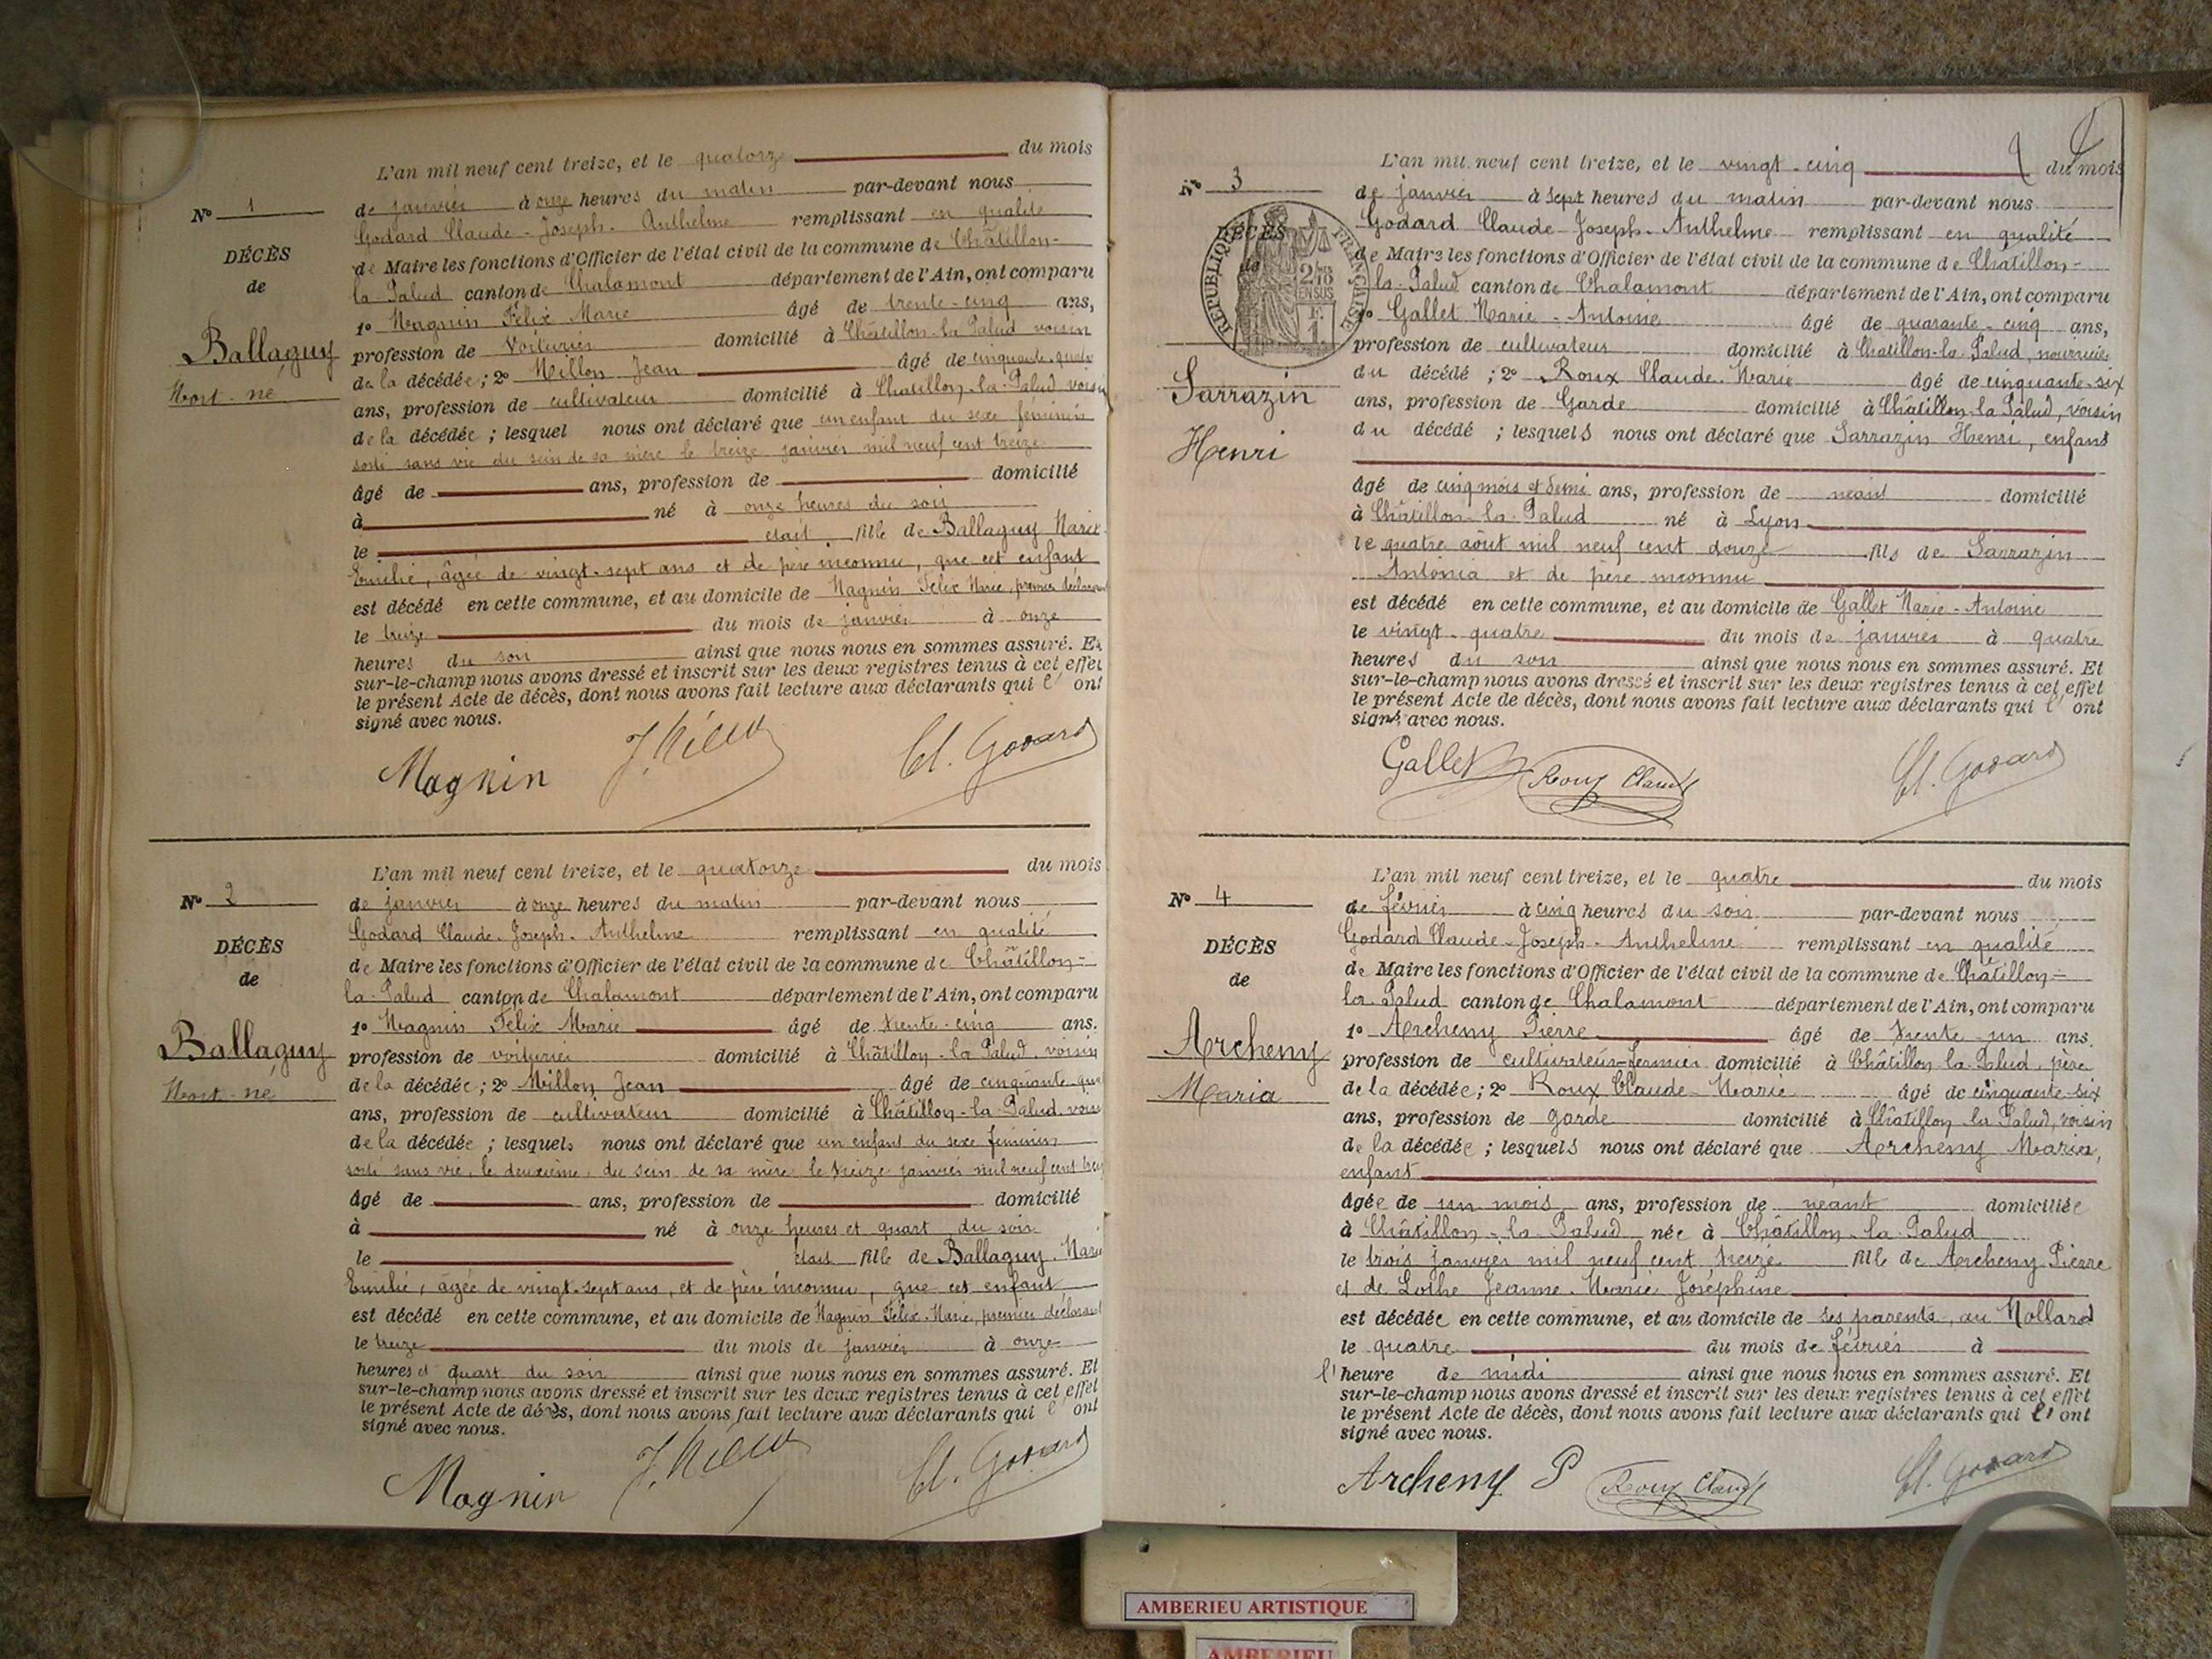 L'an mil neuf cent treize, et le quatorze du mois
de janvier à onze heures du matin par-devant nous
Nº 1
Godard Claude-Joseph-Anthelme remplissant en qualité
de Maire les fonctions d'Officier de l'état civil de la commune de Châtillon-
DÉCÈS
la-Palud canton de Chalamont département de l'Ain, ont comparu
de
1º Magnin Félix Marie âgé de trente-cinq ans,
Ballaguy
profession de Voiturier domicilié à Châtillon-la-Palud voisin
de la décédée; 2º Millon Jean âgé de cinquante-quatre
Mort-né
ans, profession de cultivateur domicilié à Châtillon-la-Palud voisin
de la décédée; lesquel nous ont déclaré que un enfant du sexe féminin
sorti sans vie du sein de sa mère le treize janvier mil neuf cent treize
âgé de ans, profession de domicilié
à né à onze heures du soir
le était fille de Ballaguy Marie
Emilie, âgée de vingt-sept ans et de père inconnu, que cet enfant
est décédé en cette commune, et au domicile de Magnin Félix Marie, premier déclarant
le treize du mois de janvier à onze
heures du soir ainsi que nous nous en sommes assuré. Et
sur-le-champ nous avons dressé et inscrit sur les deux registres tenus à cet effet
le présent Acte de décès, dont nous avons fait lecture aux déclarants qui l' ont
signé avec nous.
Magnin Cl. Godard
L'an mil neuf cent treize, et le quatorze du mois
Nº 2
de janvier à onze heures du matin par-devant nous
Godard Claude-Joseph-Anthelme remplissant en qualité
DÉCÈS
de Maire les fonctions d'Officier de l'état civil de la commune de Châtillon-
de
la-Palud canton de Chalamont département de l'Ain, ont comparu
1º Magnin Félix Marie âgé de trente-cinq ans.
Ballaguy
profession de voiturier domicilié à Châtillon-la-Palud, voisin
de la décédée; 2º Millon Jean âgé de cinquante-qua
Mort-né
ans, profession de cultivateur domicilié à Châtillon-la-Palud, voisin
de la décédée; lesquels nous ont déclaré que un enfant du sexe féminin
sorti sans vie, le deuxième, du sein de sa mère le treize janvier mil neuf cent treize
âgé de ans, profession de domicilié
à né à onze heures et quart du soir
le était fille de Ballaguy Marie
Emilie, âgée de vingt-sept ans, et de père inconnu, que cet enfant
est décédé en cette commune, et au domicile de Magnin Félix-Marie, premier déclarant
le treize du mois de janvier à onze
heures et quart du soir ainsi que nous nous en sommes assuré. Et
sur-le-champ nous avons dressé et inscrit sur les deux registres tenus à cet effet
le présent Acte de décès, dont nous avons fait lecture aux déclarants qui l' ont
signé avec nous.
Magnin Cl. Godard
L'an mil neuf cent treize, et le vingt-cinq du mois
Nº 3
de janvier à sept heures du matin par-devant nous
DÉCÈS
Godard Claude-Joseph-Anthelme remplissant en qualité
de
de Maire les fonctions d'Officier de l'état civil de la commune de Châtillon-
RÉPUBLIQUE FRANÇAISE
la-Palud canton de Chalamont département de l'Ain, ont comparu
1º Gallet Marie-Antoine âgé de quarante-cinq ans,
profession de cultivateur domicilié à Châtillon-la-Palud, nourricier
Sarrazin
du décédé; 2º Roux Claude-Marie âgé de cinquante-six
ans, profession de Garde domicilié à Châtillon-la-Palud, voisin
Henri
du décédé; lesquels nous ont déclaré que Sarrazin Henri, enfant
âgé de cinq mois et demi ans, profession de néant domicilié
à Châtillon-la-Palud né à Lyon
le quatre août mil neuf cent douze fils de Sarrazin
Antonia et de père inconnu
est décédé en cette commune, et au domicile de Gallet Marie-Antoine
le vingt-quatre du mois de janvier à quatre
heures du soir ainsi que nous nous en sommes assuré. Et
sur-le-champ nous avons dressé et inscrit sur les deux registres tenus à cet effet
le présent Acte de décès, dont nous avons fait lecture aux déclarants qui l' ont
signé avec nous.
Gallet Roux Claude Cl. Godard
L'an mil neuf cent treize, et le quatre du mois
Nº 4
de février à cinq heures du soir par-devant nous
Godard Claude-Joseph-Anthelme remplissant en qualité
DÉCÈS
de Maire les fonctions d'Officier de l'état civil de la commune de Châtillon-
de
la-Palud canton de Chalamont département de l'Ain, ont comparu
1º Archeny Pierre âgé de trente-un ans.
Archeny
profession de cultivateur-fermier domicilié à Châtillon-la-Palud, père
Maria
de la décédée; 2º Roux Claude-Marie âgé de cinquante-six
ans, profession de garde domicilié à Châtillon-la-Palud, voisin
de la décédée; lesquels nous ont déclaré que Archeny Maria,
enfant
âgée de un mois ans, profession de néant domiciliée
à Châtillon-la-Palud née à Châtillon-la-Palud
le trois janvier mil neuf cent treize fille de Archeny Pierre
et de Lothe Jeanne-Marie Joséphine
est décédée en cette commune, et au domicile de ses parents, au Mollard
le quatre du mois de février à
l'heure de midi ainsi que nous nous en sommes assuré. Et
sur-le-champ nous avons dressé et inscrit sur les deux registres tenus à cet effet
le présent Acte de décès, dont nous avons fait lecture aux déclarants qui l' ont
signé avec nous.
Archeny P Roux Claude Cl. Godard
AMBERIEU ARTISTIQUE
AMBERIEU